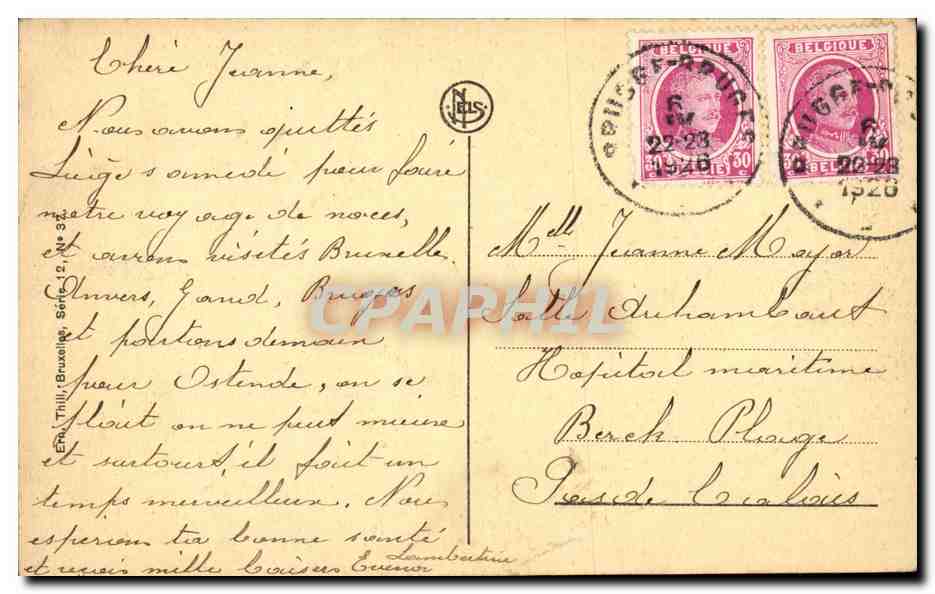 Chère Jeanne,
Nous avons quittés
Liège samedi pour faire
notre voyage de noces,
et avons visités Bruxelle
Anvers, Gand, Bruges
et partons demain
pour Ostende, on se
plait on ne peut mieux
et surtout, il fait un
temps merveilleux. Nous
esperions ta bonne santé
et reçois mille baisers
Lambertine
NELS
Ern. Thill, Bruxelles, Série 12, No 32
BELGIQUE
30 30
BELGIE
BELGIQUE
30 30
BELGIE
BRUGGE-BRUGES
6
IV
22-23
1926
BRUGGE-
6
IV
22-23
1926
Melle Jeanne Mayor
Salle Archambaut
Hopital maritime
Berck Plage
Pas de Calais
CPAPHIL